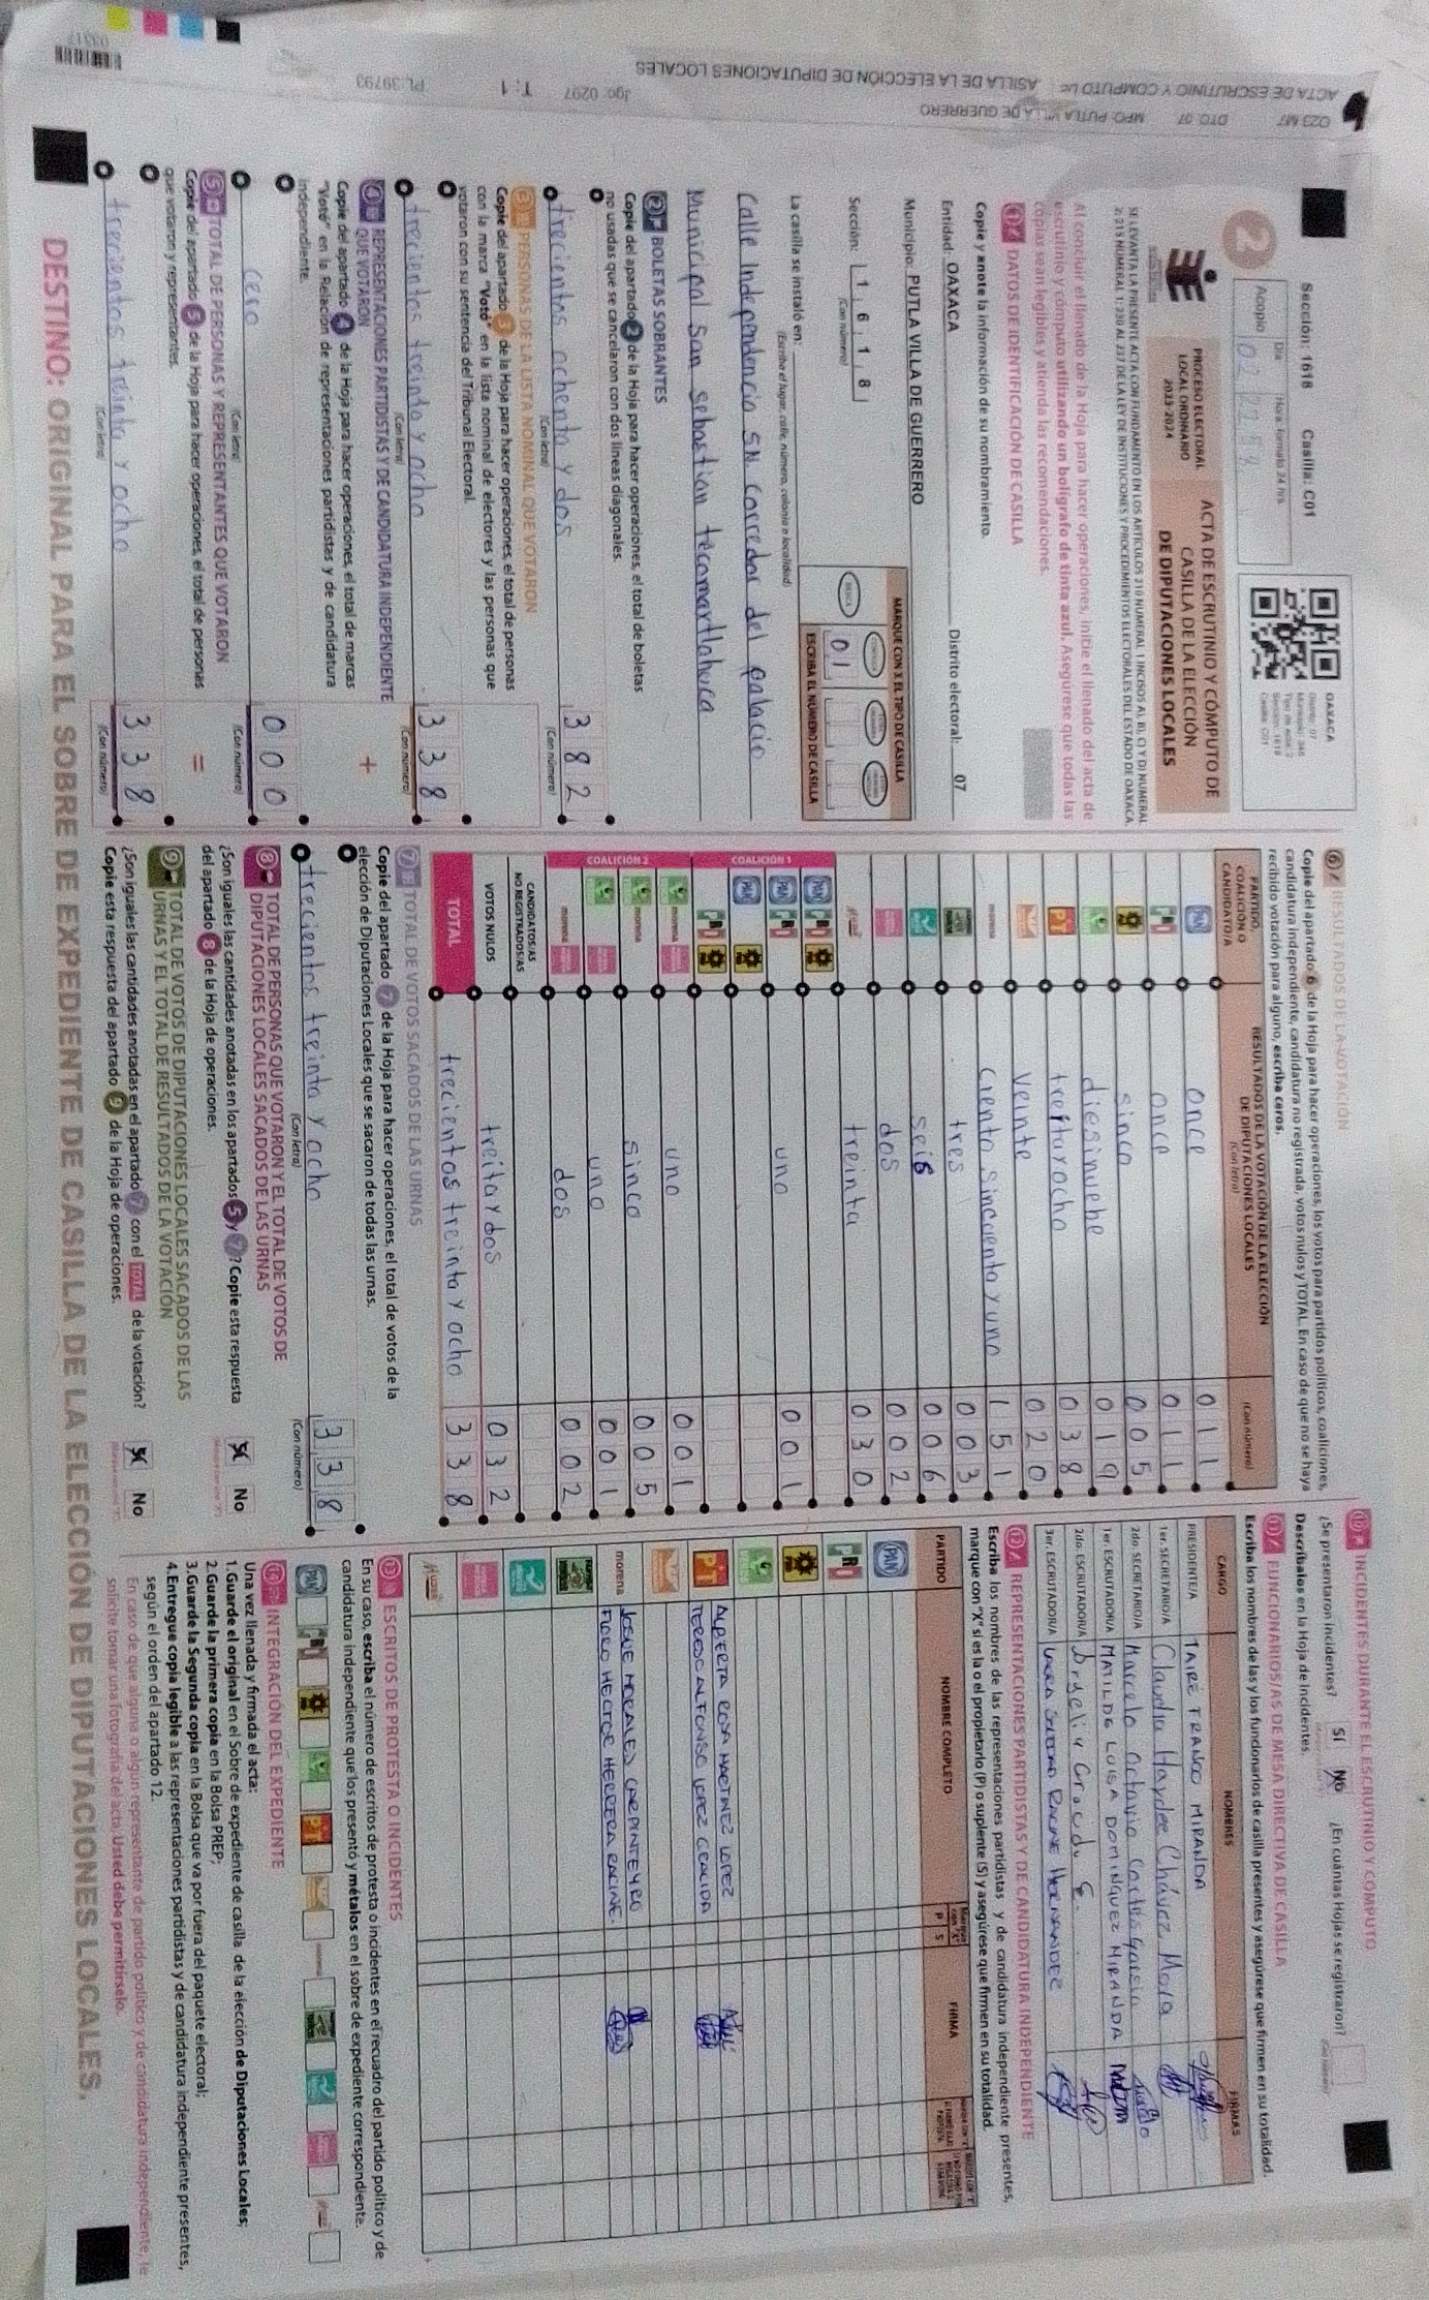 ACTA DE ESCRUTINIO Y COMPUTO
CASILLA DE LA ELECCIÓN DE DIPUTACIONES LOCALES
023 M7
DTO. 07
MPO: PUTLA VILLA DE GUERRERO
Jgo: 0297
T: 1
PL:39793
03317
Sección: 1618 Casilla: C01
2
Acopio
Día
Hora: formato 24 hrs
OAXACA
PROCESO ELECTORAL
LOCAL ORDINARIO
2023-2024
ACTA DE ESCRUTINIO Y CÓMPUTO DE
CASILLA DE LA ELECCIÓN
DE DIPUTACIONES LOCALES
Al concluir el llenado de la Hoja para hacer operaciones, inicie el llenado del acta de
escrutinio y cómputo utilizando un bolígrafo de tinta azul. Asegúrese que todas las
copias sean legibles y atienda las recomendaciones.
1 DATOS DE IDENTIFICACIÓN DE CASILLA
Copie y anote la información de su nombramiento.
Entidad: OAXACA Distrito electoral: 07
Municipio: PUTLA VILLA DE GUERRERO
Sección: 1 6 1 8
(Con número)
MARQUE CON X EL TIPO DE CASILLA
ESCRIBA EL NÚMERO DE CASILLA
01
La casilla se instaló en:
(Escriba el lugar, calle, número, colonia o localidad)
Calle Independencia SN Corredor del palacio
Municipal San sebastian tecomaxtlahuca
2 BOLETAS SOBRANTES
Copie del apartado 2 de la Hoja para hacer operaciones, el total de boletas
no usadas que se cancelaron con dos líneas diagonales.
trecientos ochenta y dos 382
(Con letra) (Con número)
3 PERSONAS DE LA LISTA NOMINAL QUE VOTARON
Copie del apartado 3 de la Hoja para hacer operaciones, el total de personas
con la marca "Votó" en la lista nominal de electores y las personas que
votaron con su sentencia del Tribunal Electoral.
trecientos treinta y ocho 338
(Con letra) (Con número)
4 REPRESENTACIONES PARTIDISTAS Y DE CANDIDATURA INDEPENDIENTE
QUE VOTARON
Copie del apartado 4 de la Hoja para hacer operaciones, el total de marcas
"Votó" en la Relación de representaciones partidistas y de candidatura
independiente.
+
cero 000
(Con letra) (Con número)
5 TOTAL DE PERSONAS Y REPRESENTANTES QUE VOTARON
Copie del apartado 5 de la Hoja para hacer operaciones, el total de personas
que votaron y representantes.
=
trecientos treinta y ocho 338
(Con letra) (Con número)
6 RESULTADOS DE LA VOTACIÓN
Copie del apartado 6 de la Hoja para hacer operaciones, los votos para partidos políticos, coaliciones,
candidatura independiente, candidatura no registrada, votos nulos y TOTAL. En caso de que no se haya
recibido votación para alguno, escriba ceros.
PARTIDO, COALICIÓN O CANDIDATO/A
RESULTADOS DE LA VOTACIÓN DE LA ELECCIÓN
DE DIPUTACIONES LOCALES
(Con letra) (Con número)
PAN once 011
PRI once 011
sinco 005
diesinuebe 019
PT treitayocho 038
veinte 020
morena Ciento Sincuenta y uno 151
tres 003
seis 006
dos 002
treinta 030
COALICIÓN 1
uno 001
COALICIÓN 2
uno 001
sinco 005
uno 001
dos 002
CANDIDATOS/AS
NO REGISTRADOS/AS
VOTOS NULOS treitaydos 032
TOTAL trecientos treinta y ocho 338
7 TOTAL DE VOTOS SACADOS DE LAS URNAS
Copie del apartado 7 de la Hoja para hacer operaciones, el total de votos de la
elección de Diputaciones Locales que se sacaron de todas las urnas.
trecientos treinta y ocho 338
(Con letra) (Con número)
8 TOTAL DE PERSONAS QUE VOTARON Y EL TOTAL DE VOTOS DE
DIPUTACIONES LOCALES SACADOS DE LAS URNAS
¿Son iguales las cantidades anotadas en los apartados 5 y 7? Copie esta respuesta
del apartado 8 de la Hoja de operaciones.
Sí No
9 TOTAL DE VOTOS DE DIPUTACIONES LOCALES SACADOS DE LAS
URNAS Y EL TOTAL DE RESULTADOS DE LA VOTACIÓN
¿Son iguales las cantidades anotadas en el apartado 7 con el TOTAL de la votación?
Copie esta respuesta del apartado 9 de la Hoja de operaciones.
Sí No
10 INCIDENTES DURANTE EL ESCRUTINIO Y CÓMPUTO
¿Se presentaron incidentes? Sí No ¿En cuántas Hojas se registraron?
Descríbalos en la Hoja de incidentes.
11 FUNCIONARIOS/AS DE MESA DIRECTIVA DE CASILLA
Escriba los nombres de las y los funcionarios de casilla presentes y asegúrese que firmen en su totalidad.
CARGO NOMBRES FIRMAS
PRESIDENTE/A TAIRE FRANCO MIRANDA
1er. SECRETARIO/A Claudia Haydee Chávez Mora
2do. SECRETARIO/A Marcelo Octavio Cortes garcia
1er. ESCRUTADOR/A MATILDE LUISA DOMINGUEZ MIRANDA
2do. ESCRUTADOR/A
3er. ESCRUTADOR/A
12 REPRESENTACIONES PARTIDISTAS Y DE CANDIDATURA INDEPENDIENTE
Escriba los nombres de las representaciones partidistas y de candidatura independiente presentes,
marque con "X" si es la o el propietario (P) o suplente (S) y asegúrese que firmen en su totalidad.
PARTIDO NOMBRE COMPLETO P S FIRMA
PAN
PRI
PT
ALBERTA ROSA MARTINEZ LOPEZ
morena
FLORO HECTOR HERRERA RACINE.
13 ESCRITOS DE PROTESTA O INCIDENTES
En su caso, escriba el número de escritos de protesta o incidentes en el recuadro del partido político y de
candidatura independiente que los presentó y métalos en el sobre de expediente correspondiente.
PAN PRI PT
INTEGRACIÓN DEL EXPEDIENTE
Una vez llenada y firmada el acta:
1. Guarde el original en el Sobre de expediente de casilla de la elección de Diputaciones Locales;
2. Guarde la primera copia en la Bolsa PREP;
3. Guarde la Segunda copia en la Bolsa que va por fuera del paquete electoral;
4. Entregue copia legible a las representaciones partidistas y de candidatura independiente presentes,
según el orden del apartado 12.
En caso de que alguna o algún representante de partido político y de candidatura independiente, le
solicite tomar una fotografía del acta, Usted debe permitírselo.
DESTINO: ORIGINAL PARA EL SOBRE DE EXPEDIENTE DE CASILLA DE LA ELECCIÓN DE DIPUTACIONES LOCALES.